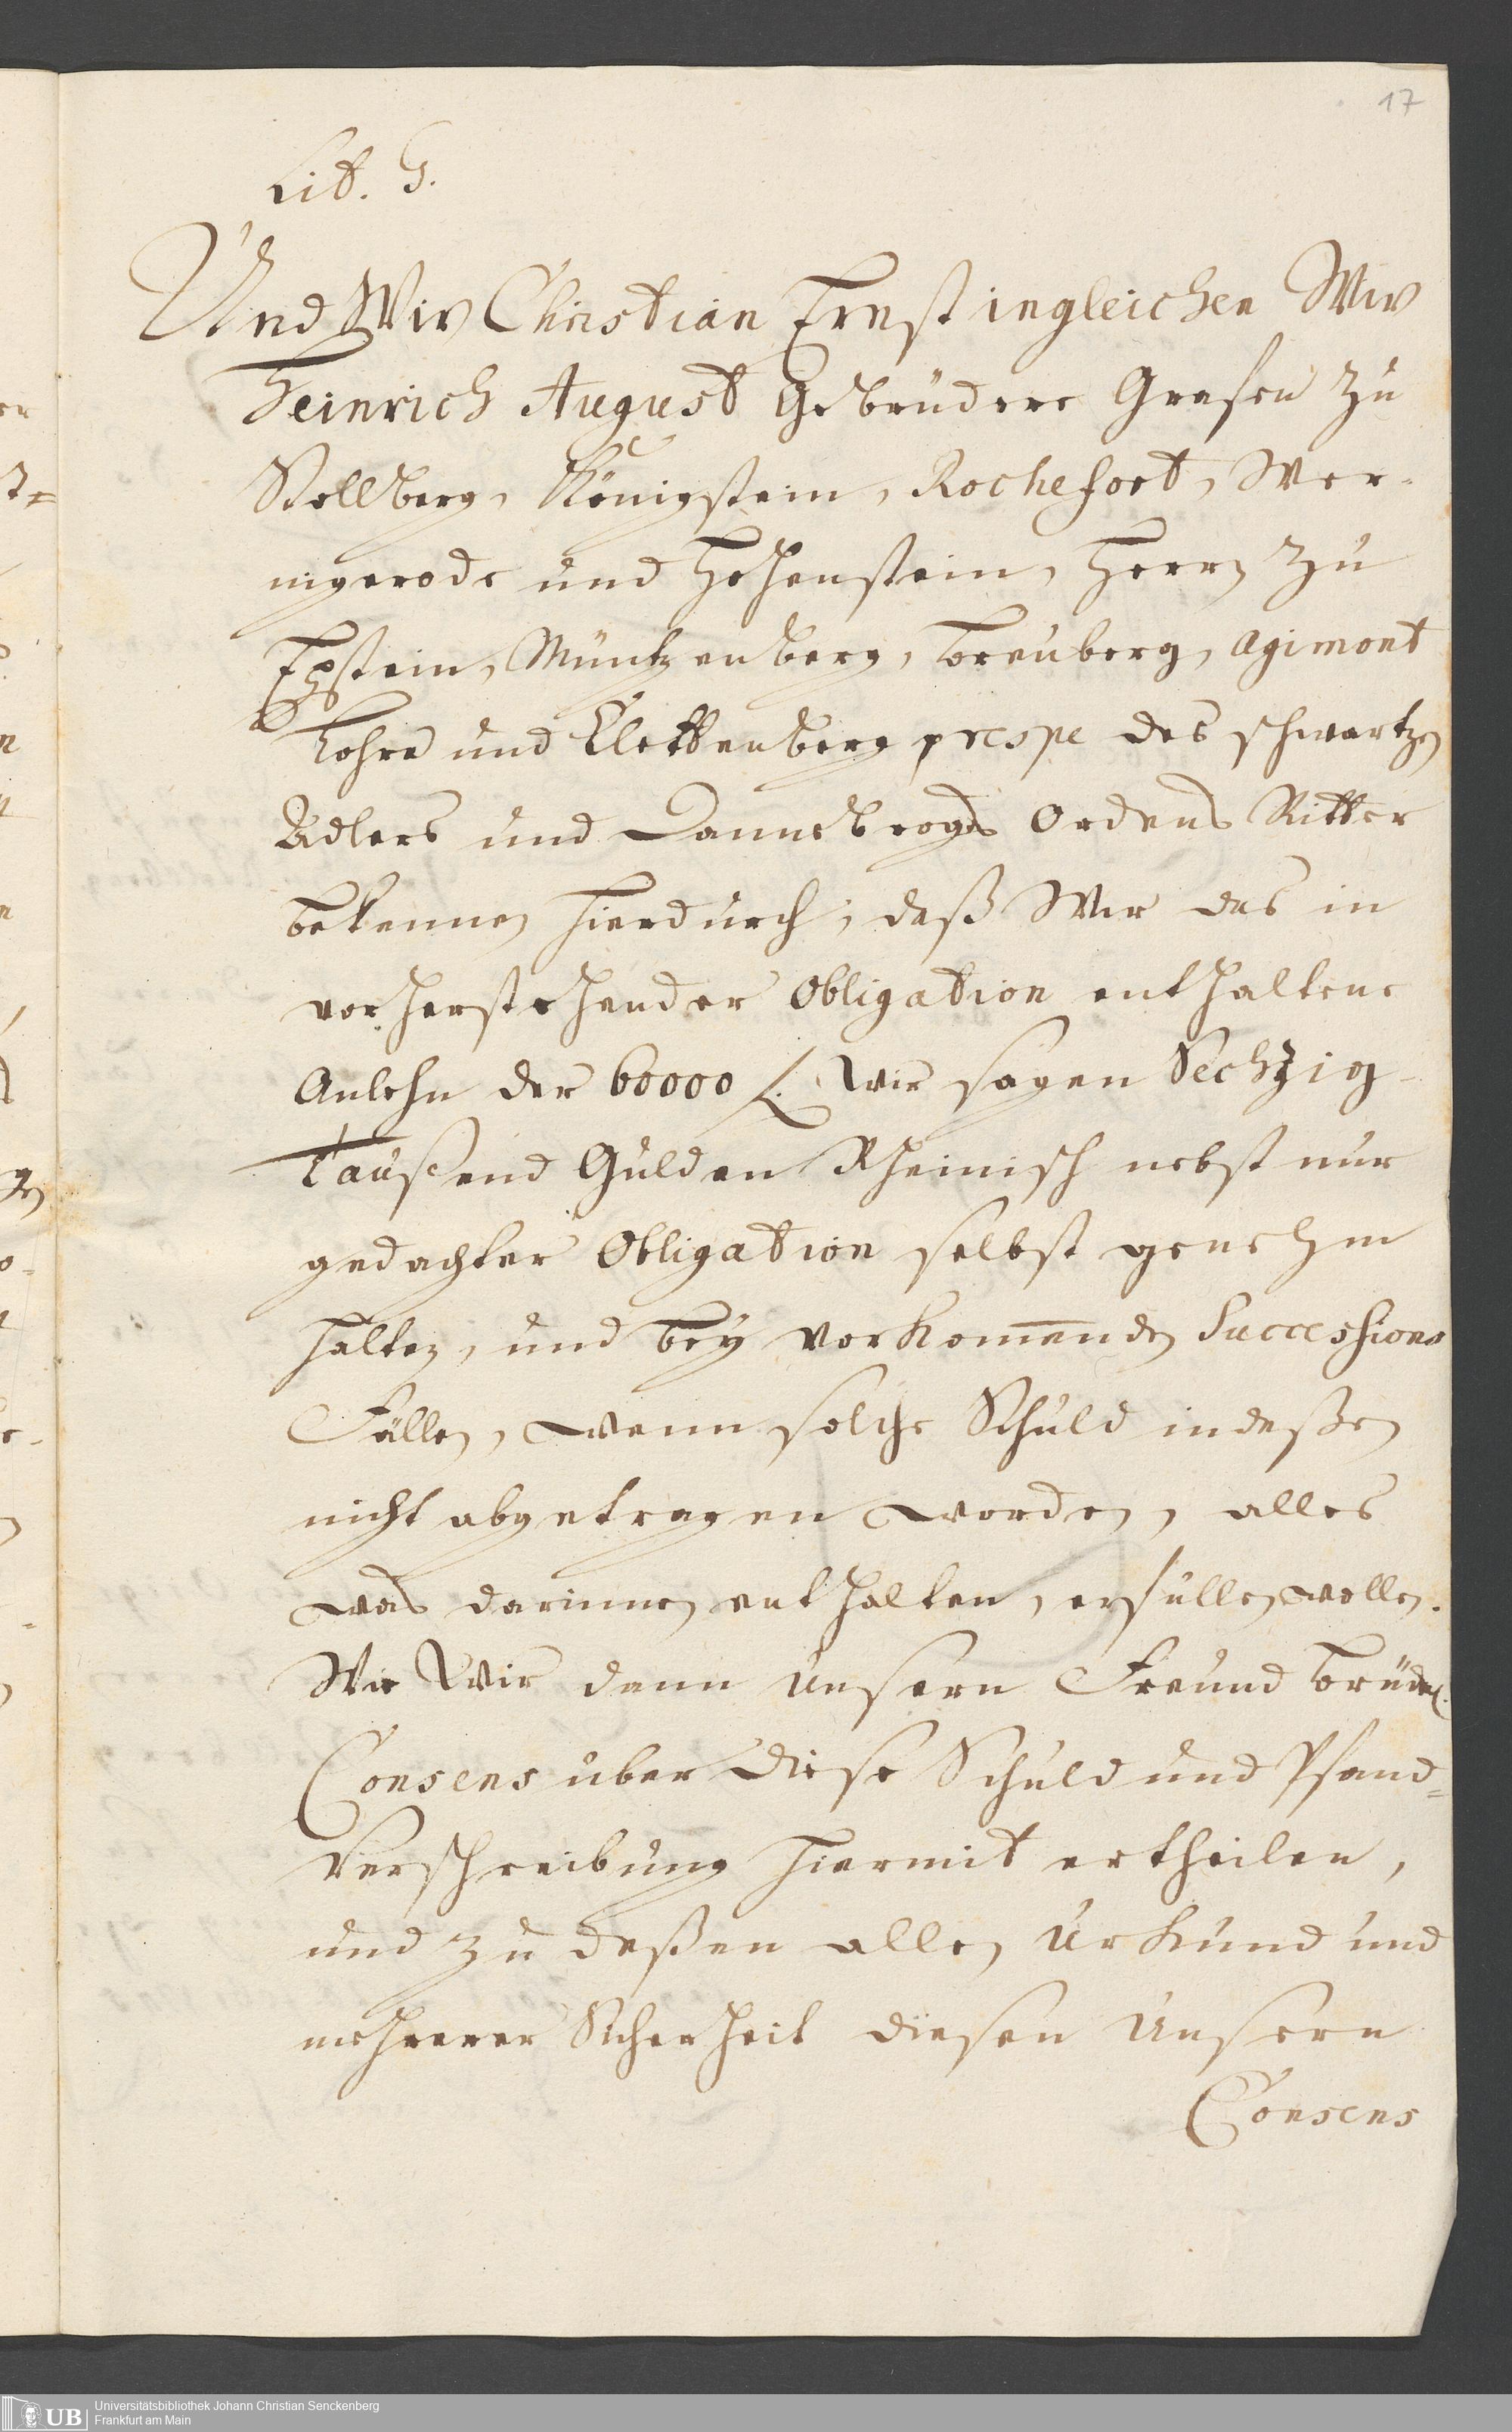 17
Lit. G.
Und Wir Christian Ernst ingleichen Wir
Heinrich August Gebrüdere Grafen zu
Stollberg, Königstein, Rochefort, Wer-
nigerode und Hohenstein, Herrn zu
Epstein, Müntzenberg, Breuberg, Agimont
Lohra und Clettenberg prespe des schwartzen
Adlers und Dannebrogs Ordens Ritter
bekennen hierdurch, daß Wir das in
vorherstehender Obligation enthaltene
Anlehn der 60000 f. Wir sagen Sechzig-
Taußend Gulden Rheinisch nebst nur
gedachter Obligation selbst genehm
halten, und bey vorkom̅enden Successions
Fällen, wenn solche Schuld indeßen
nicht abgetragen worden, alles
was darinnen enthalten, erfüllen wollen.
Wie Wir dann Unsern Freund brüderl.
Consens über diese Schuld und Pfand=
Verschreibung hiermit ertheilen,
und zu deßen allen Urkund und
mehrerer Sicherheit diesen Unsern
Consens
UB
Universitätsbibliothek Johann Christian Senckenberg
Frankfurt am Main